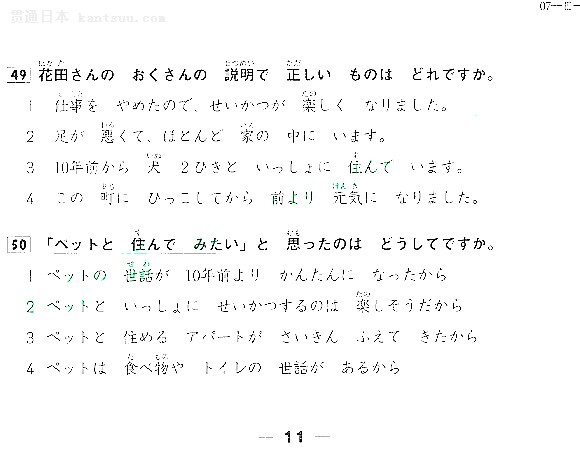 贯通日本 kantsuu.com
07—Ⅲ—
49 花田さんの おくさんの 説明で 正しい ものは どれですか。
1 仕事を やめたので、せいかつが 楽しく なりました。
2 足が 悪くて、ほとんど 家の 中に います。
3 10年前から 犬 2ひきと いっしょに 住んで います。
4 この 町に ひっこしてから 前より 元気に なりました。
50 「ペットと 住んで みたい」と 思ったのは どうしてですか。
1 ペットの 世話が 10年前より かんたんに なったから
2 ペットと いっしょに せいかつするのは 楽しそうだから
3 ペットと 住める アパートが さいきん ふえて きたから
4 ペットは 食べ物や トイレの 世話が あるから
— 11 —